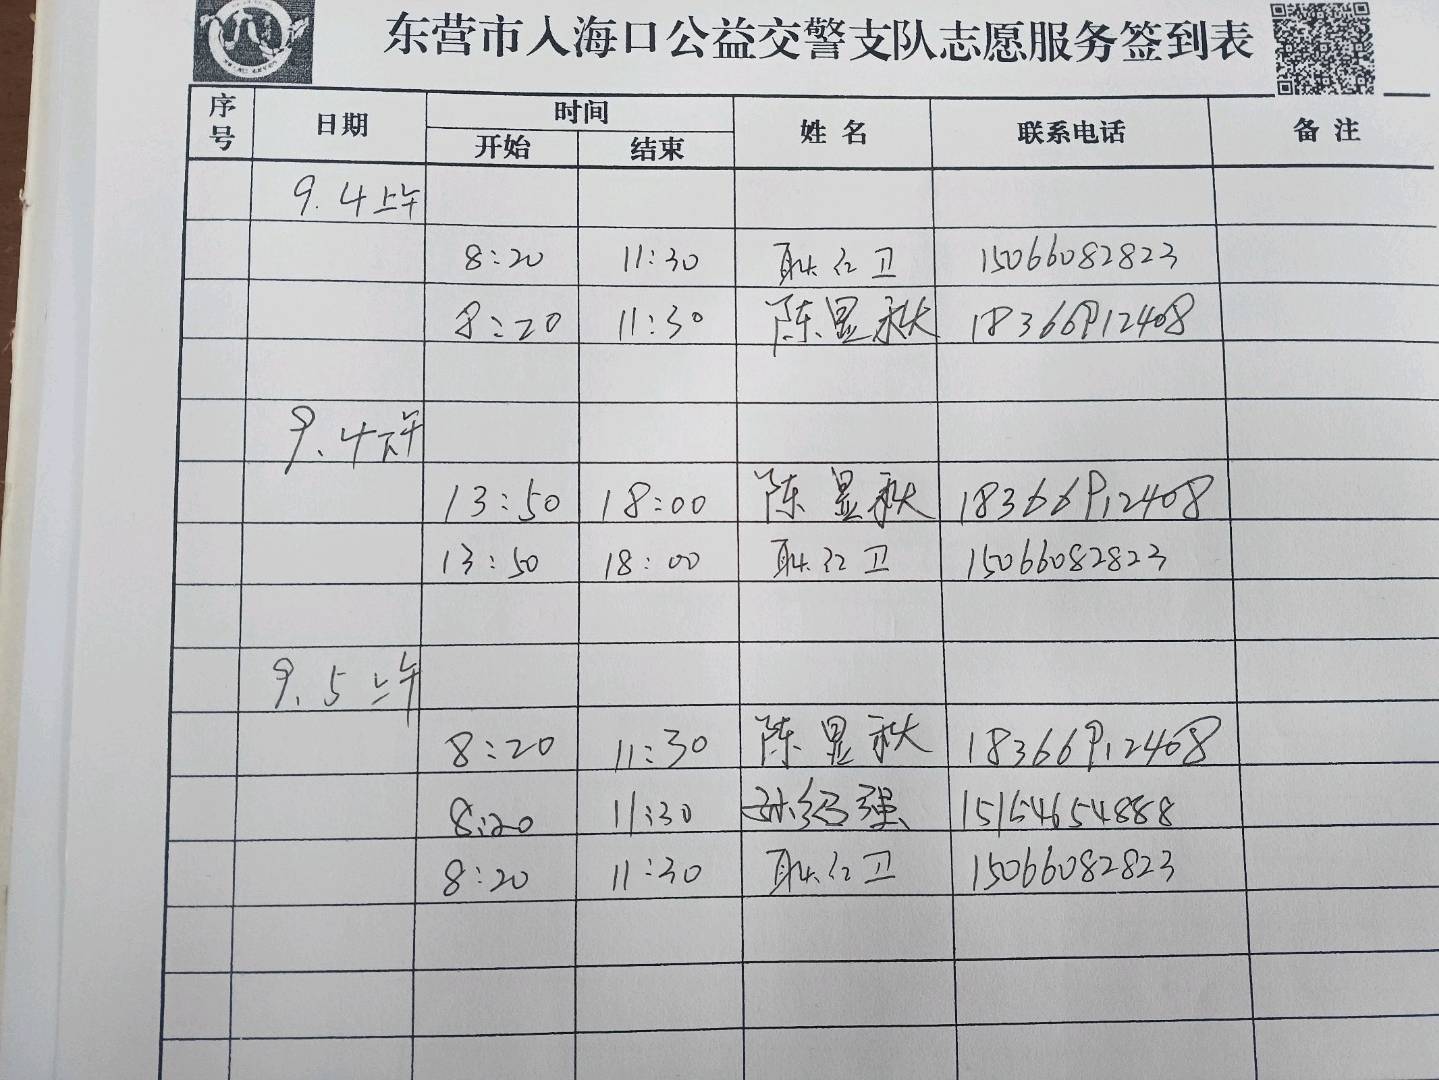 东营市入海口公益交警支队志愿服务签到表
序号 日期 时间 姓名 联系电话 备注
开始 结束
9.4上午
8:20 11:30 耿红卫 15066082823
8:20 11:30 陈显秋 18366912408
9.4下午
13:50 18:00 陈显秋 18366912408
13:50 18:00 耿红卫 15066082823
9.5上午
8:20 11:30 陈显秋 18366912408
8:20 11:30 孙绍强 15154654888
8:20 11:30 耿红卫 15066082823